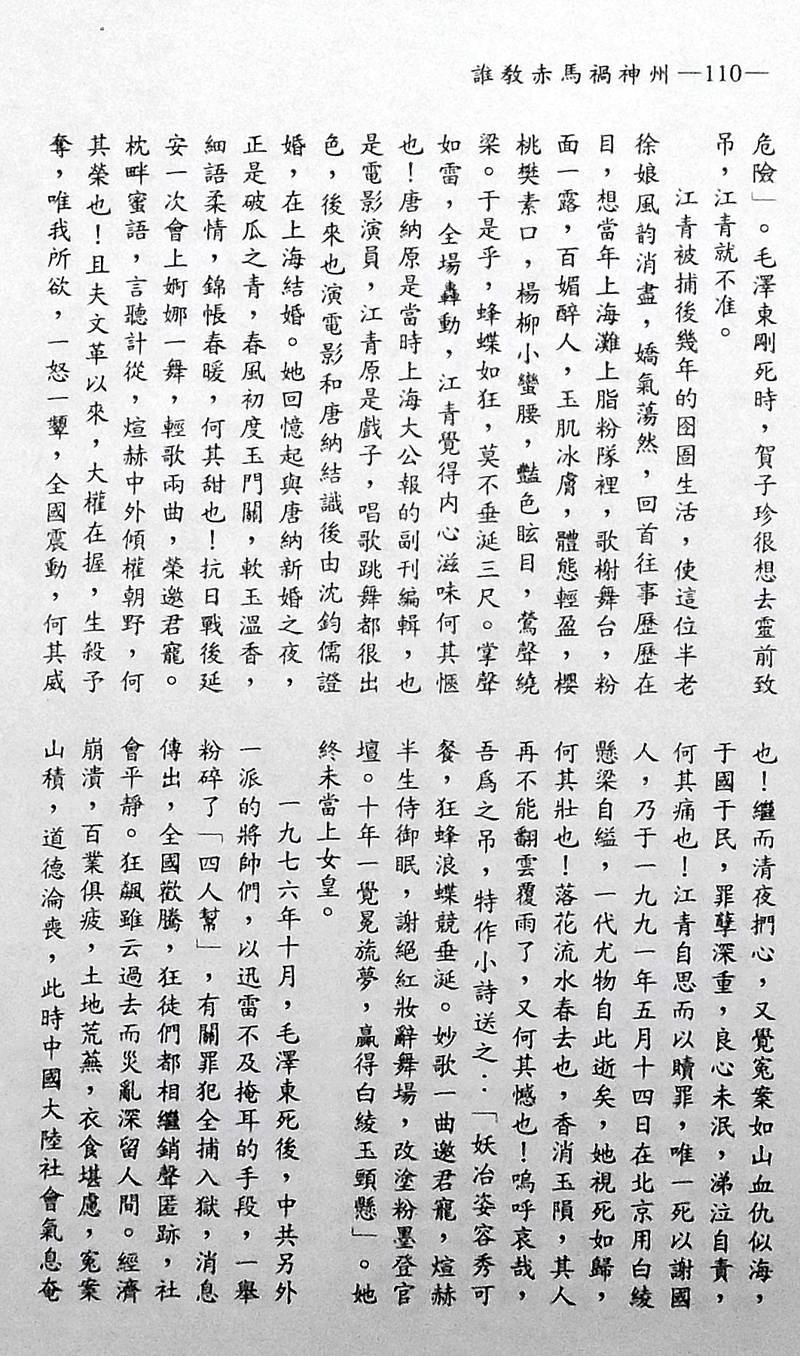 誰教赤馬禍神州 —110—
危險」。毛澤東剛死時，賀子珍很想去靈前致
吊，江青就不准。
江青被捕後幾年的囹圄生活，使這位半老
徐娘風韵消盡，嬌氣蕩然，回首往事歷歷在
目，想當年上海灘上脂粉隊裡，歌榭舞台，粉
面一露，百媚醉人，玉肌冰膚，體態輕盈，櫻
桃樊素口，楊柳小蠻腰，豔色眩目，鶯聲繞
梁。于是乎，蜂蝶如狂，莫不垂涎三尺。掌聲
如雷，全場轟動，江青覺得内心滋味何其愜
也！唐納原是當時上海大公報的副刊編輯，也
是電影演員，江青原是戲子，唱歌跳舞都很出
色，後來也演電影和唐納結識後由沈鈞儒證
婚，在上海結婚。她回憶起與唐納新婚之夜，
正是破瓜之青，春風初度玉門關，軟玉溫香，
細語柔情，錦帳春暖，何其甜也！抗日戰後延
安一次會上婀娜一舞，輕歌兩曲，榮邀君寵。
枕畔蜜語，言聽計從，煊赫中外傾權朝野，何
其榮也！且夫文革以來，大權在握，生殺予
奪，唯我所欲，一怒一顰，全國震動，何其威
也！繼而清夜捫心，又覺冤案如山血仇似海，
于國于民，罪孽深重，良心未泯，涕泣自責，
何其痛也！江青自思而以贖罪，唯一死以謝國
人，乃于一九九一年五月十四日在北京用白綾
懸梁自縊，一代尤物自此逝矣，她視死如歸，
何其壯也！落花流水春去也，香消玉隕，其人
再不能翻雲覆雨了，又何其憾也！嗚呼哀哉，
吾爲之吊，特作小詩送之：「妖冶姿容秀可
餐，狂蜂浪蝶競垂涎。妙歌一曲邀君寵，煊赫
半生侍御眠，謝絕紅妝辭舞場，改塗粉墨登官
壇。十年一覺冕旒夢，贏得白綾玉頸懸」。她
終未當上女皇。
一九七六年十月，毛澤東死後，中共另外
一派的將帥們，以迅雷不及掩耳的手段，一舉
粉碎了「四人幫」，有關罪犯全捕入獄，消息
傳出，全國歡騰，狂徒們都相繼銷聲匿跡，社
會平靜。狂飆雖云過去而災亂深留人間。經濟
崩潰，百業俱疲，土地荒蕪，衣食堪慮，冤案
山積，道德淪喪，此時中國大陸社會氣息奄